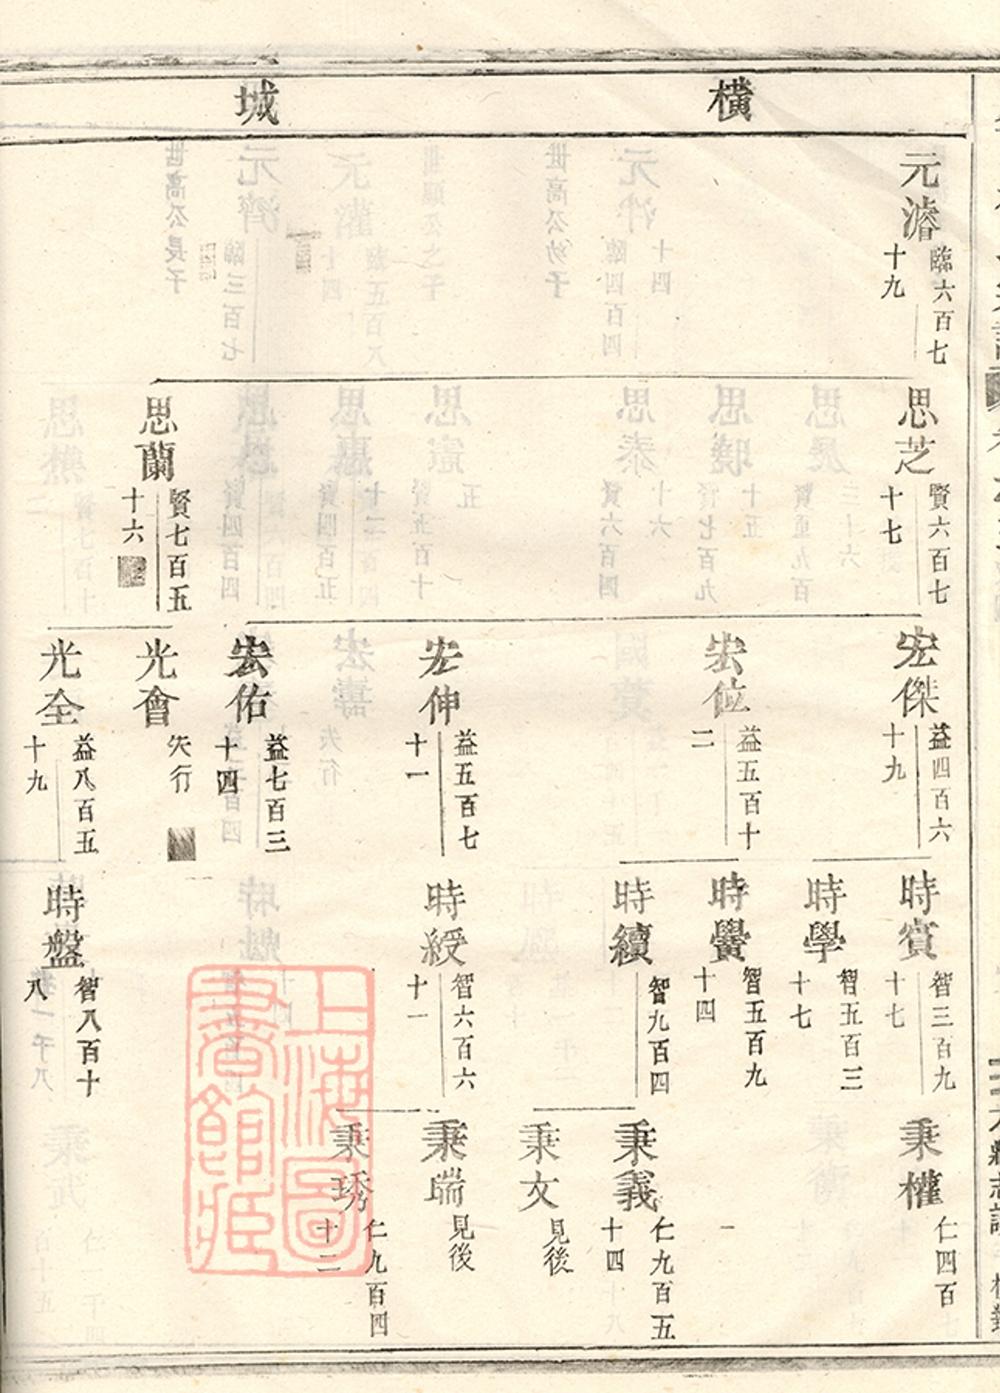 橫城
元濬
臨六百七
十九
思芝
賢六百七
十七
思蘭
賢七百五
十六
宏傑
益四百六
十九
宏位
益五百十
二
宏伸
益五百七
十一
宏佑
益七百三
十四
光會
失行
光全
益八百五
十九
時賓
智三百九
十七
時學
智五百三
十七
時黌
智五百九
十四
時續
智九百四
時綬
智六百六
十一
時盤
智八百十
八
秉權
仁四百
一
秉義
仁九百五
十四
秉文
見後
秉端
見後
秉琇
仁九百四
十二
上海圖
書館藏